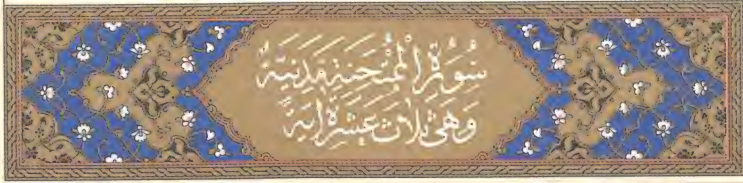 سُورَةُ الْمُمْتَحِنَةِ مَدَنِيَّةٌ
وَهِيَ ثَلَاثَ عَشْرَةَ اٰيَةً